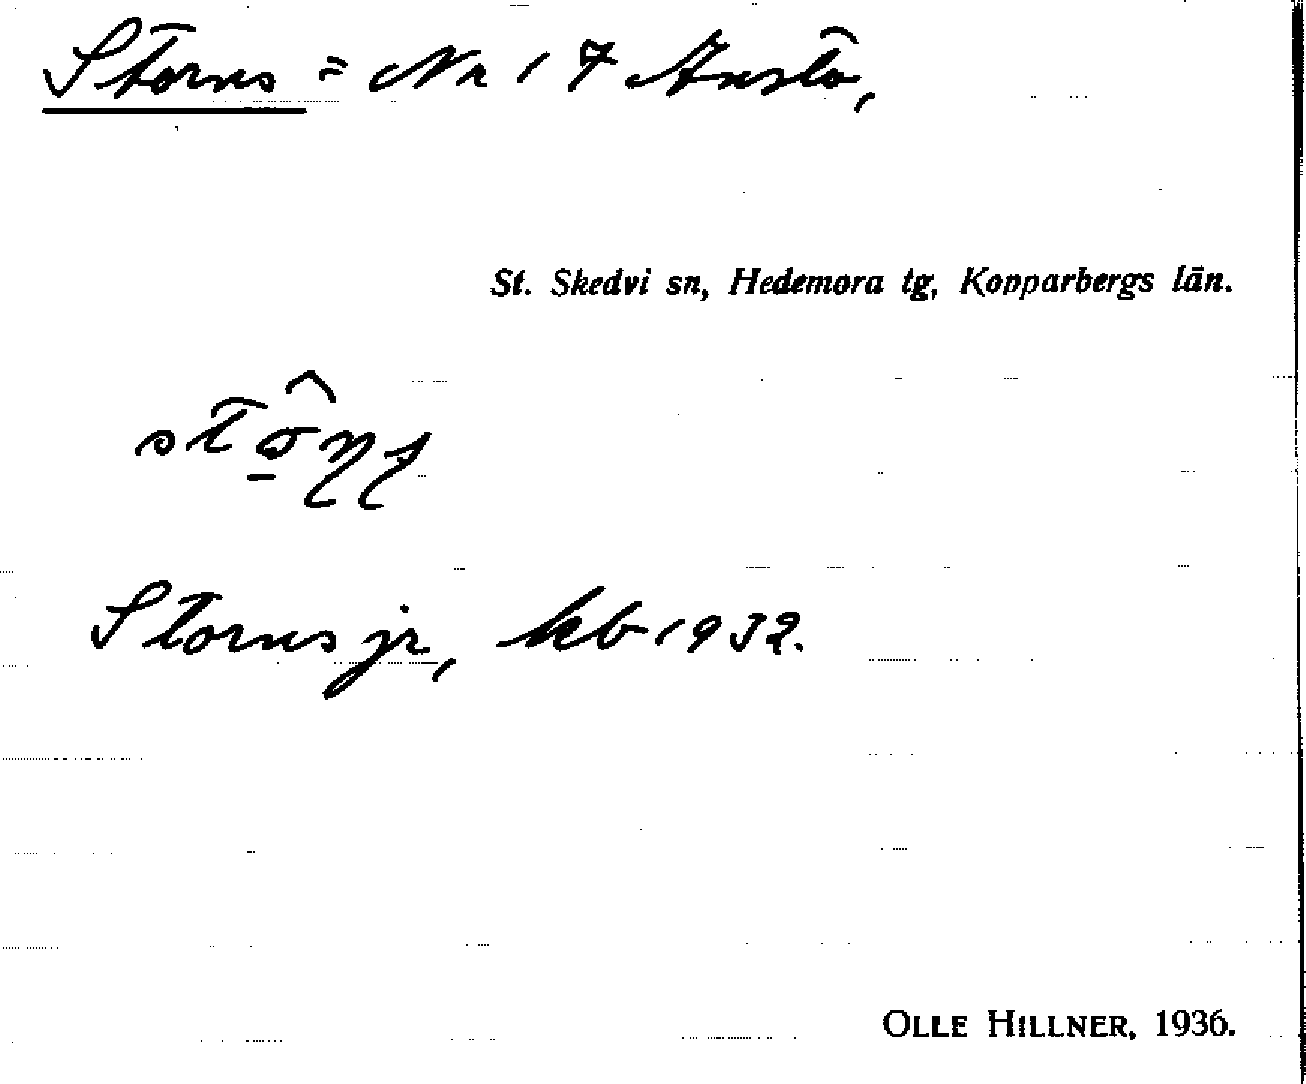 Storns = Nr 17 Knstö,
St. Skedvi sn, Hedemora tg, Kopparbergs län.
Storns jr, kb 1932.
OLLE HILLNER, 1936.